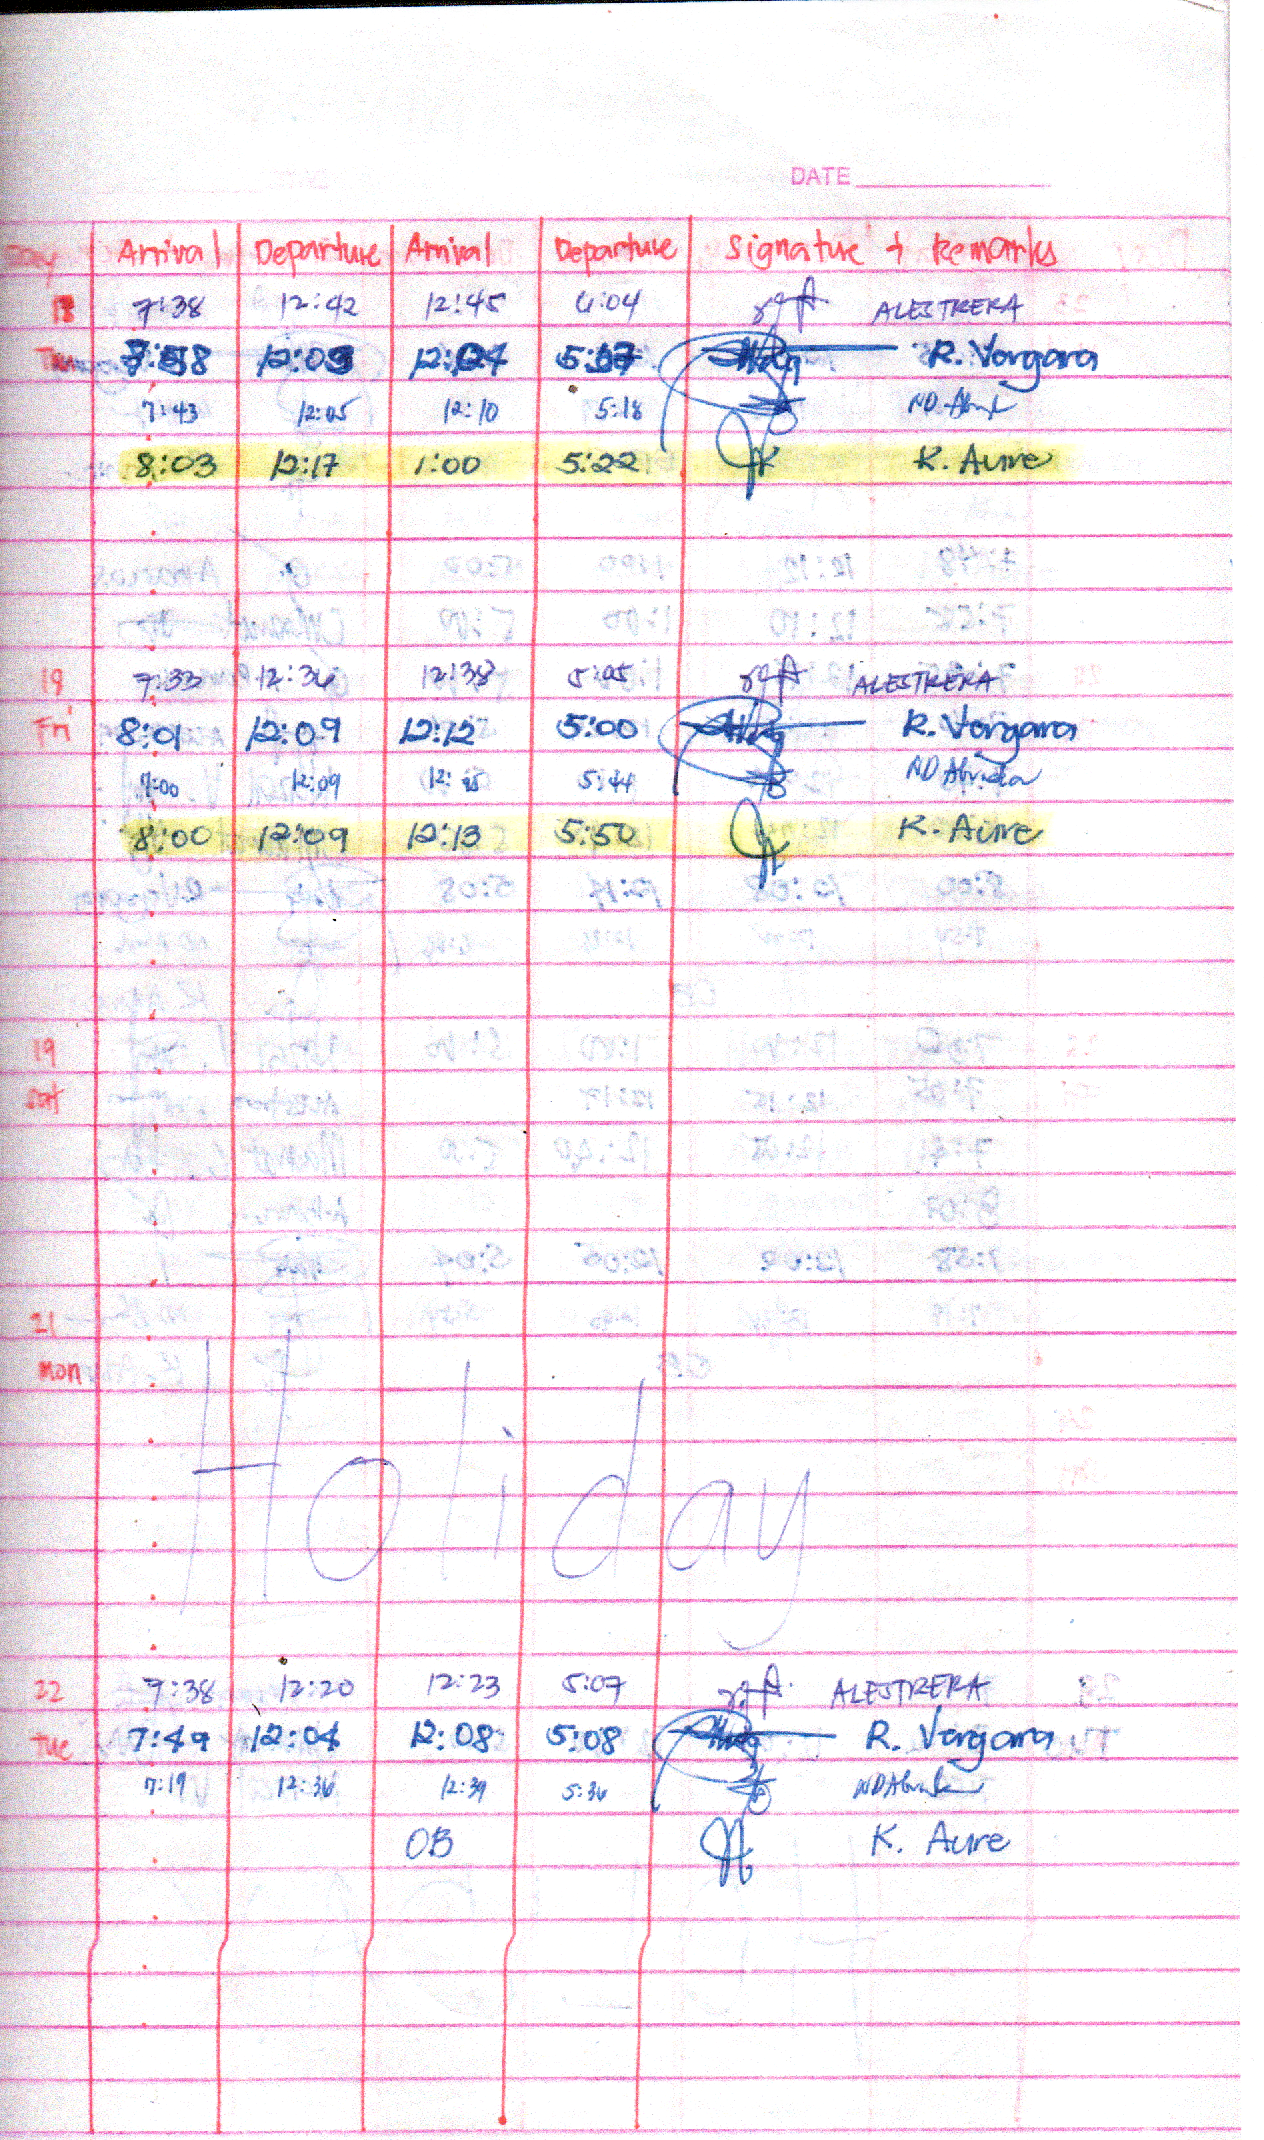 DATE
Day Arrival Departure Arrival Departure Signature & Remarks
7:38 12:42 12:45 6:04 ALESTRERA
Thu 7:58 12:03 12:04 5:17 R. Vergara
7:43 12:05 12:10 5:18
8:03 12:17 1:00 5:22 K. Aure
18 7:33 12:36 12:38 5:05 ALESTRERA
Fri 8:01 12:09 12:12 5:00 R. Vergara
7:00 12:09 5:44
8:00 12:09 12:13 5:50 K. Aure
19
Sat
21
Mon
Holiday
22 7:38 12:20 12:23 5:07 ALESTRERA
Tue 7:49 12:04 12:08 5:08 R. Vergara
7:19 12:36 12:39 5:36
OB K. Aure